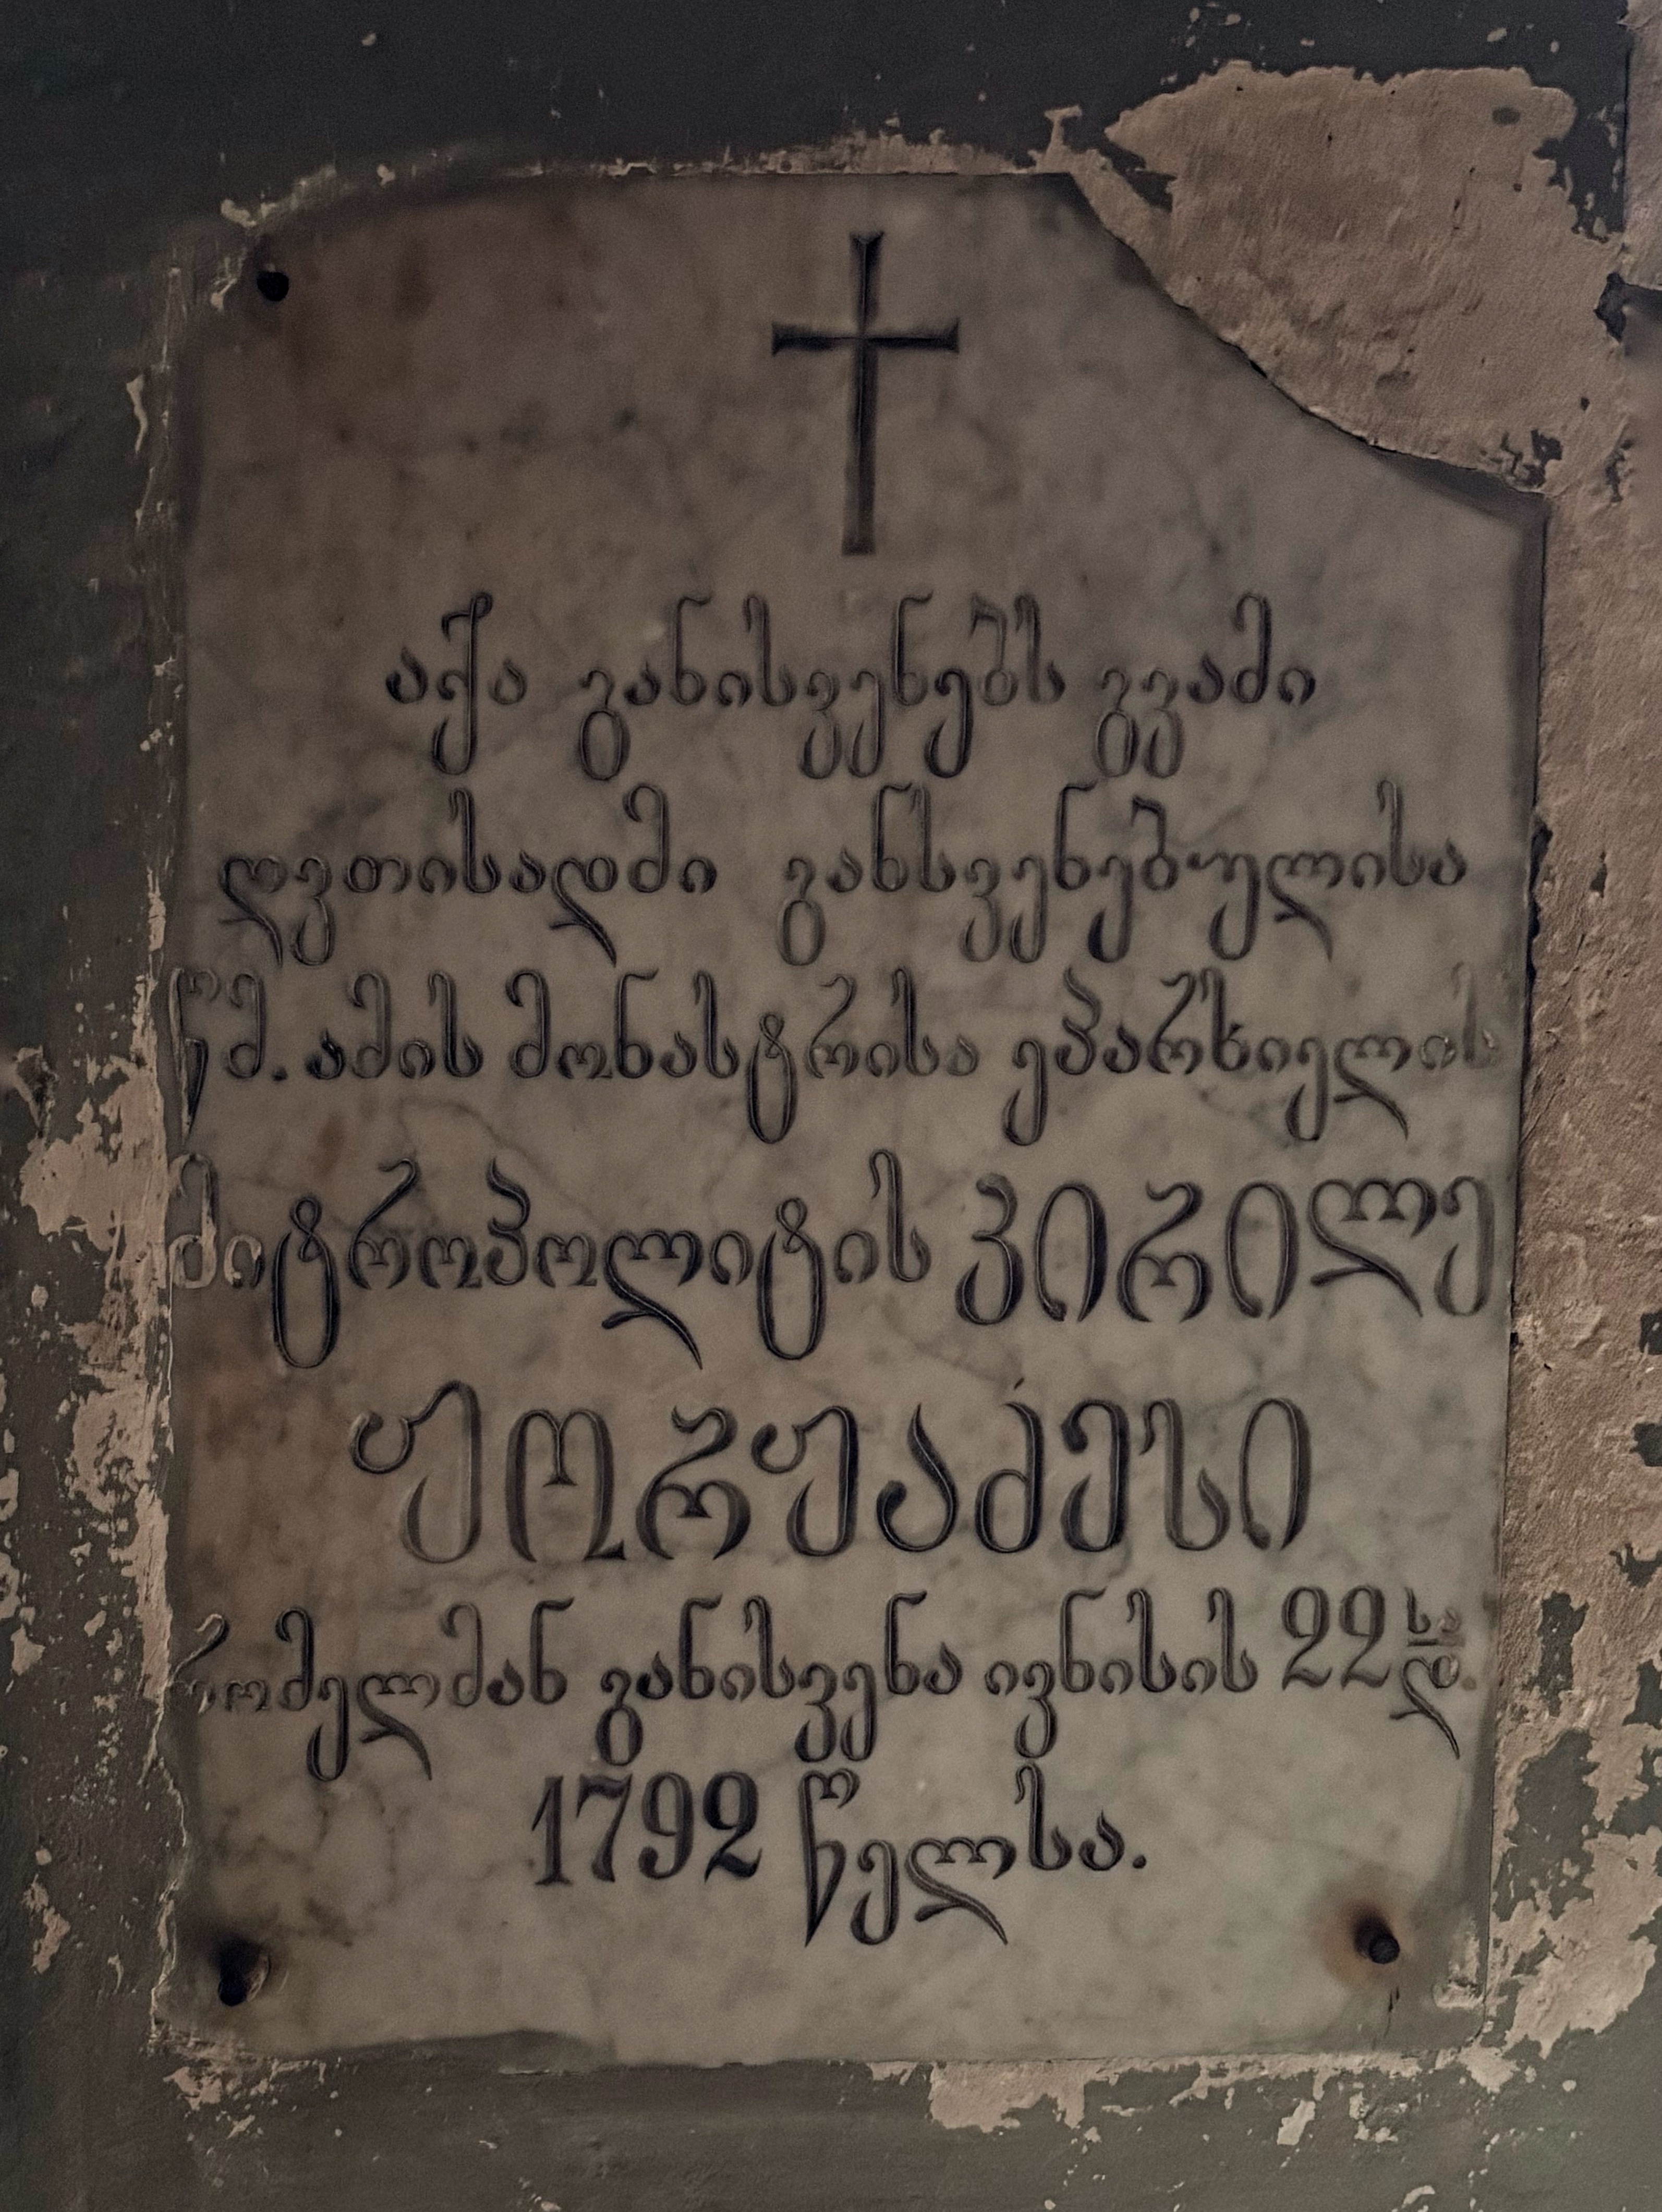 აქა განისვენებს გვამი
ღვთისადმი განსვენებულისა
წმ. ამის მონასტრისა ეპარხიელის
მიტროპოლიტის კირილე
ჟორჟაძესი
რომელმან განისვენა ივნისის 22 სა დ.
1792 წელსა.